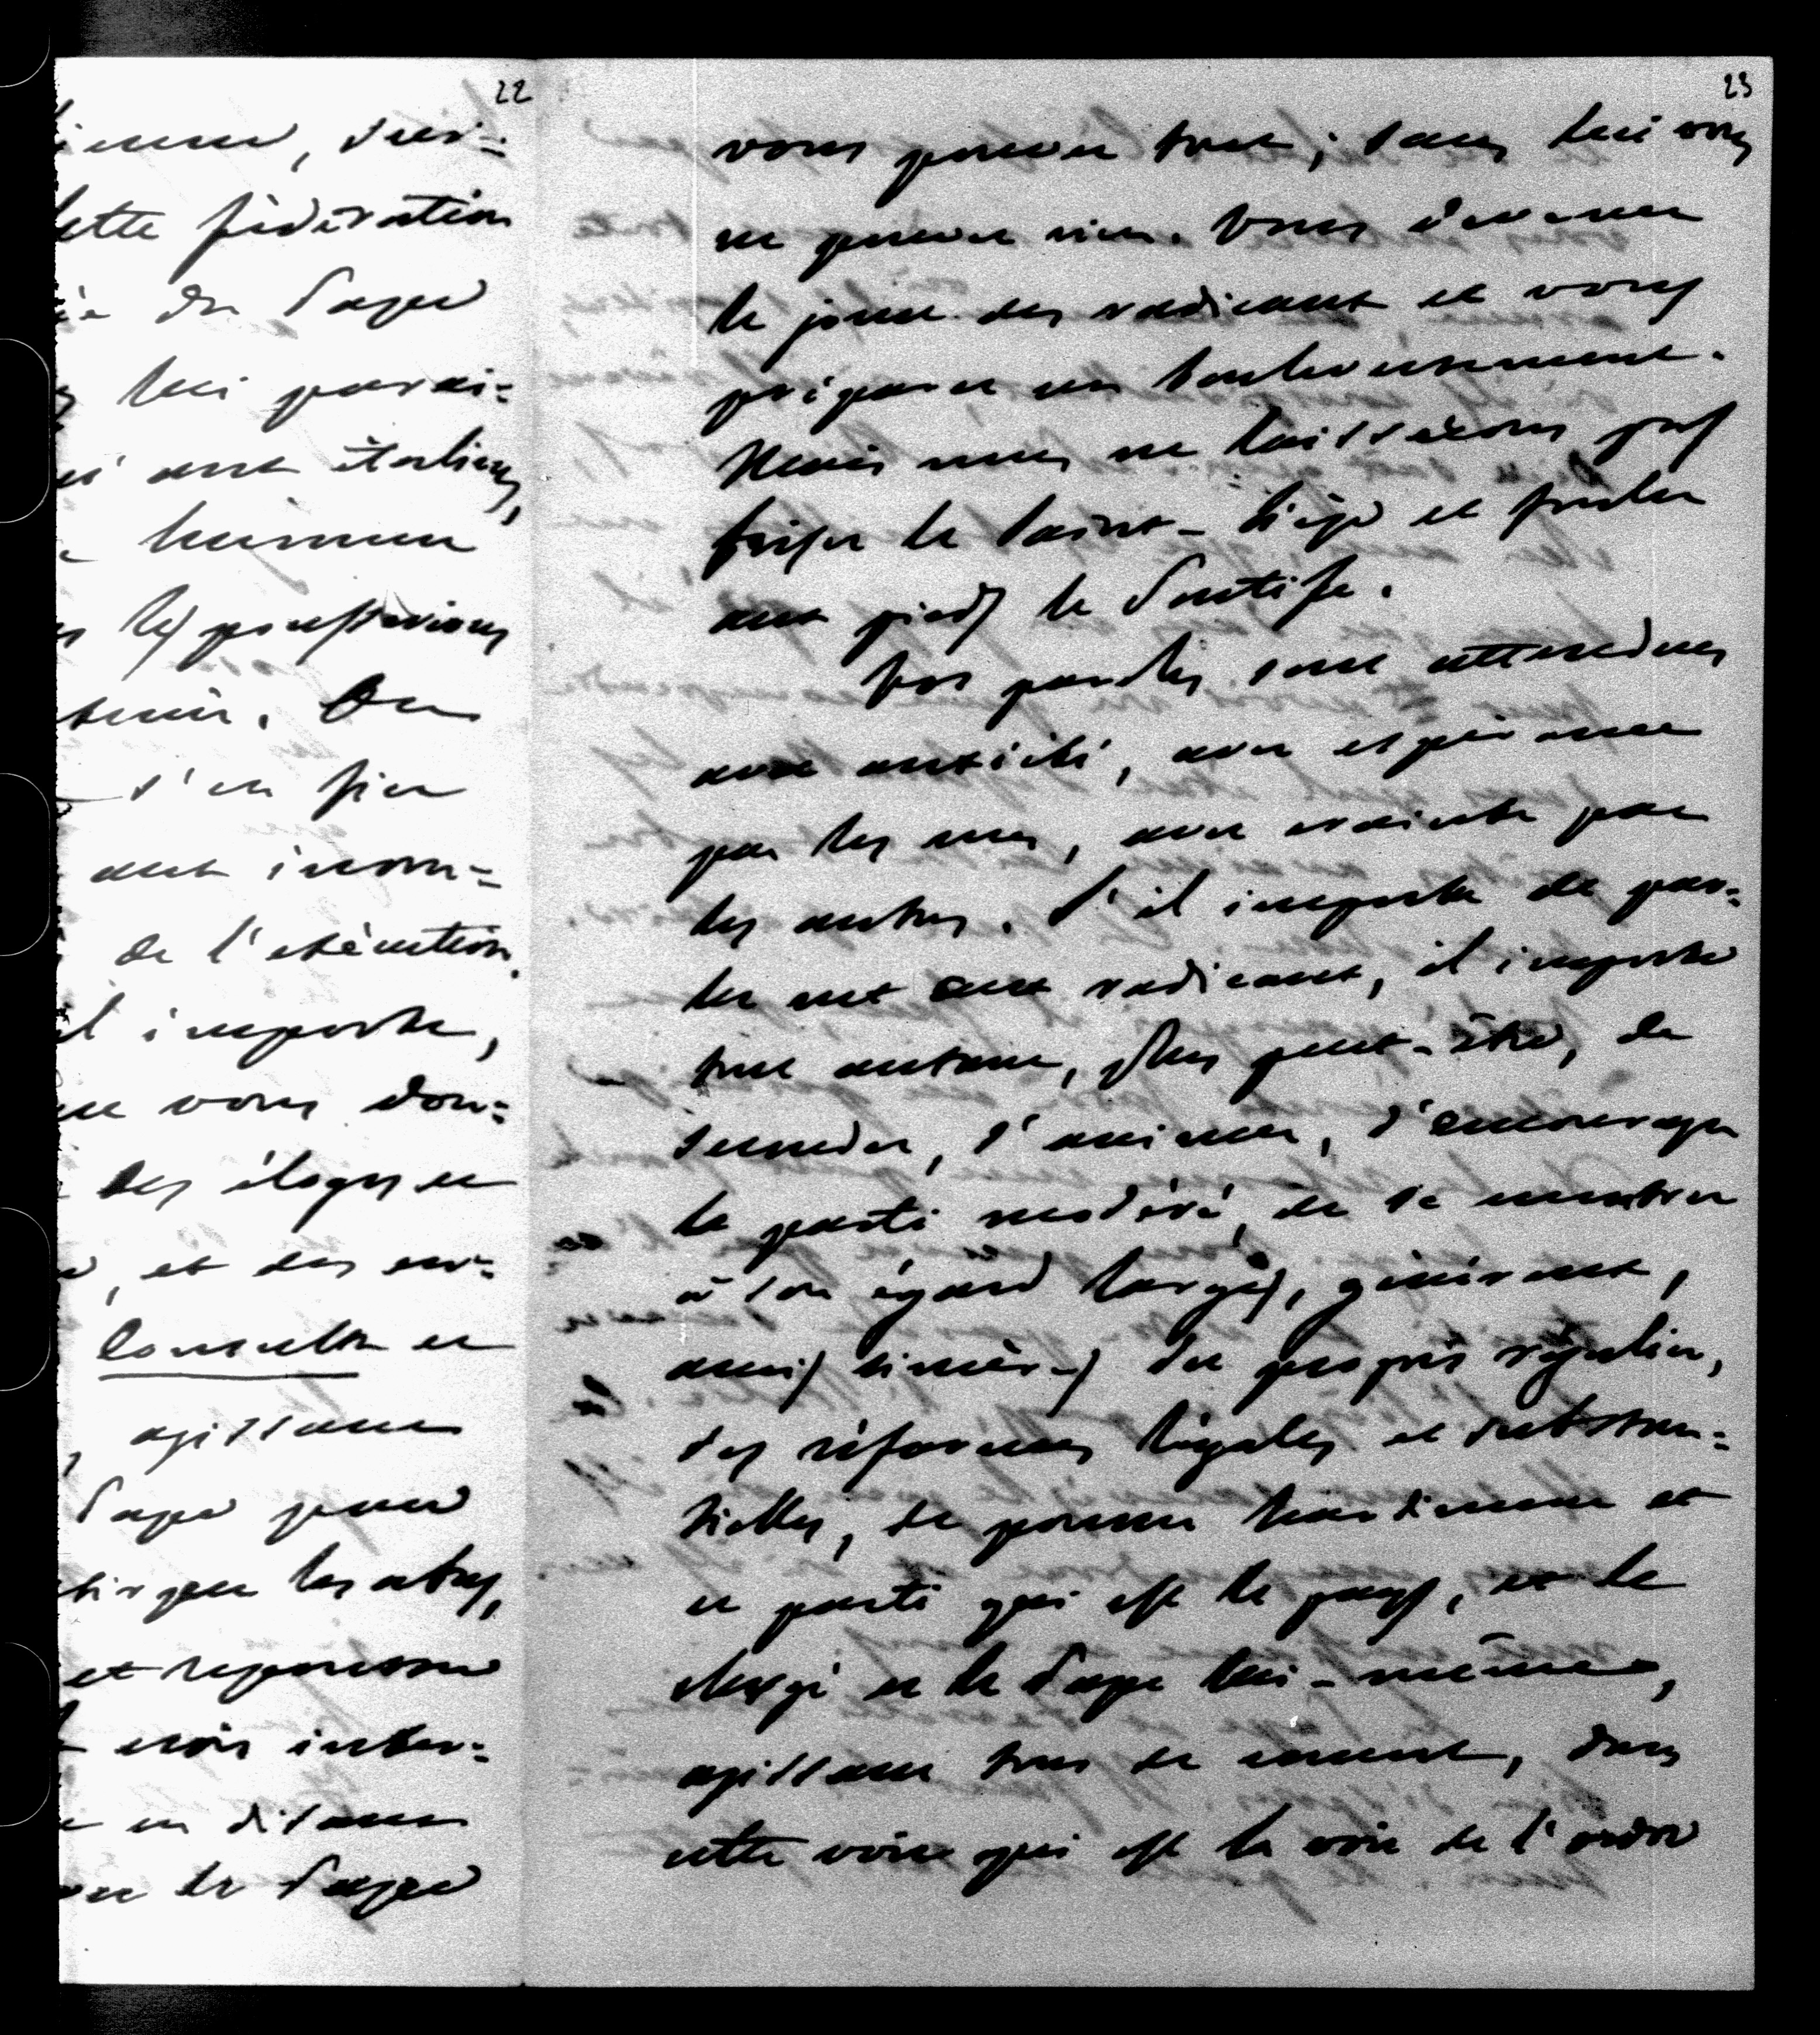 22
, suri=
cette fédération
du Pape
lui parai=
aux italiens,
les possessions
tenir. On
s'en fier
aux incon=
de l'exécution.
il importe,
vous don=
des éloges et
, et des en=
Consulta et
, agissant
Pape pour
les actes,
et repousser
non inter=
en disant
le Pape
23
vous pouvez tout ; sans lui vous
ne pouvez rien. Vous devenez
le jouet des radicaux et vous
préparez un bouleversement.
Mais nous ne laisserons pas
briser le Saint-Siège et fouler
aux pieds le Pontife.
Vos paroles sont attendues
avec anxiété, avec espérance
par les uns, avec crainte par
les autres. S'il importe de par=
ler net aux radicaux, il importe
tout autant, plus peut-être, de
seconder, d'animer, d'encourager
le parti modéré, de se montrer
à son égard larges, généreux,
amis sincères du progrès régulier,
des réformes légales et substan=
tielles, de pousser hardiment et
ce parti qui est le pays, et le
clergé et le Pape lui-même,
agissant tous de concert, dans
cette voie qui est la voie de l'ordre